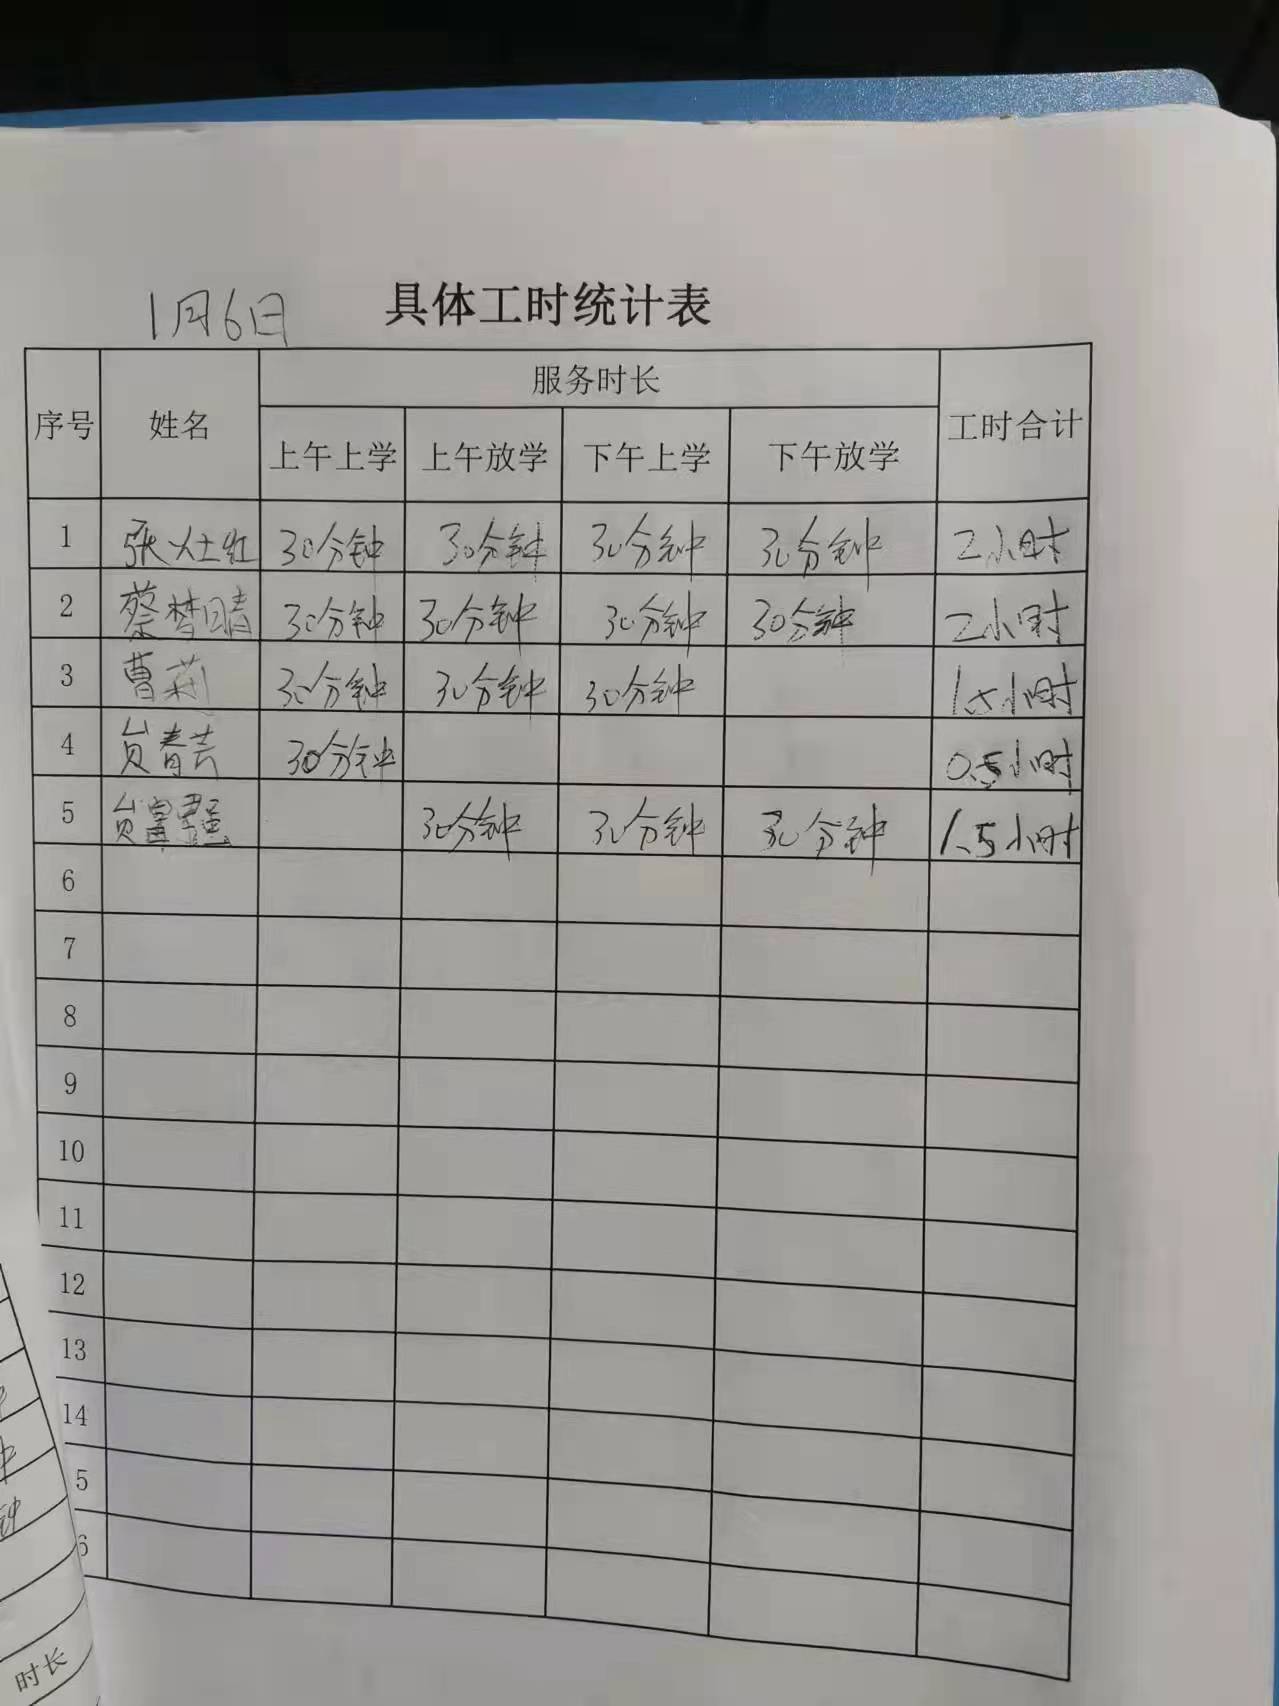 1月6日 具体工时统计表
序号 姓名 服务时长 工时合计
上午上学 上午放学 下午上学 下午放学
1 张灶红 30分钟 30分钟 30分钟 30分钟 2小时
2 蔡梦晴 30分钟 30分钟 30分钟 30分钟 2小时
3 曹莉 30分钟 30分钟 30分钟 1.5小时
4 贠春芸 30分钟 0.5小时
5 贠富强 30分钟 30分钟 30分钟 1.5小时
6
7
8
9
10
11
12
13
14
5
6
钟
时长